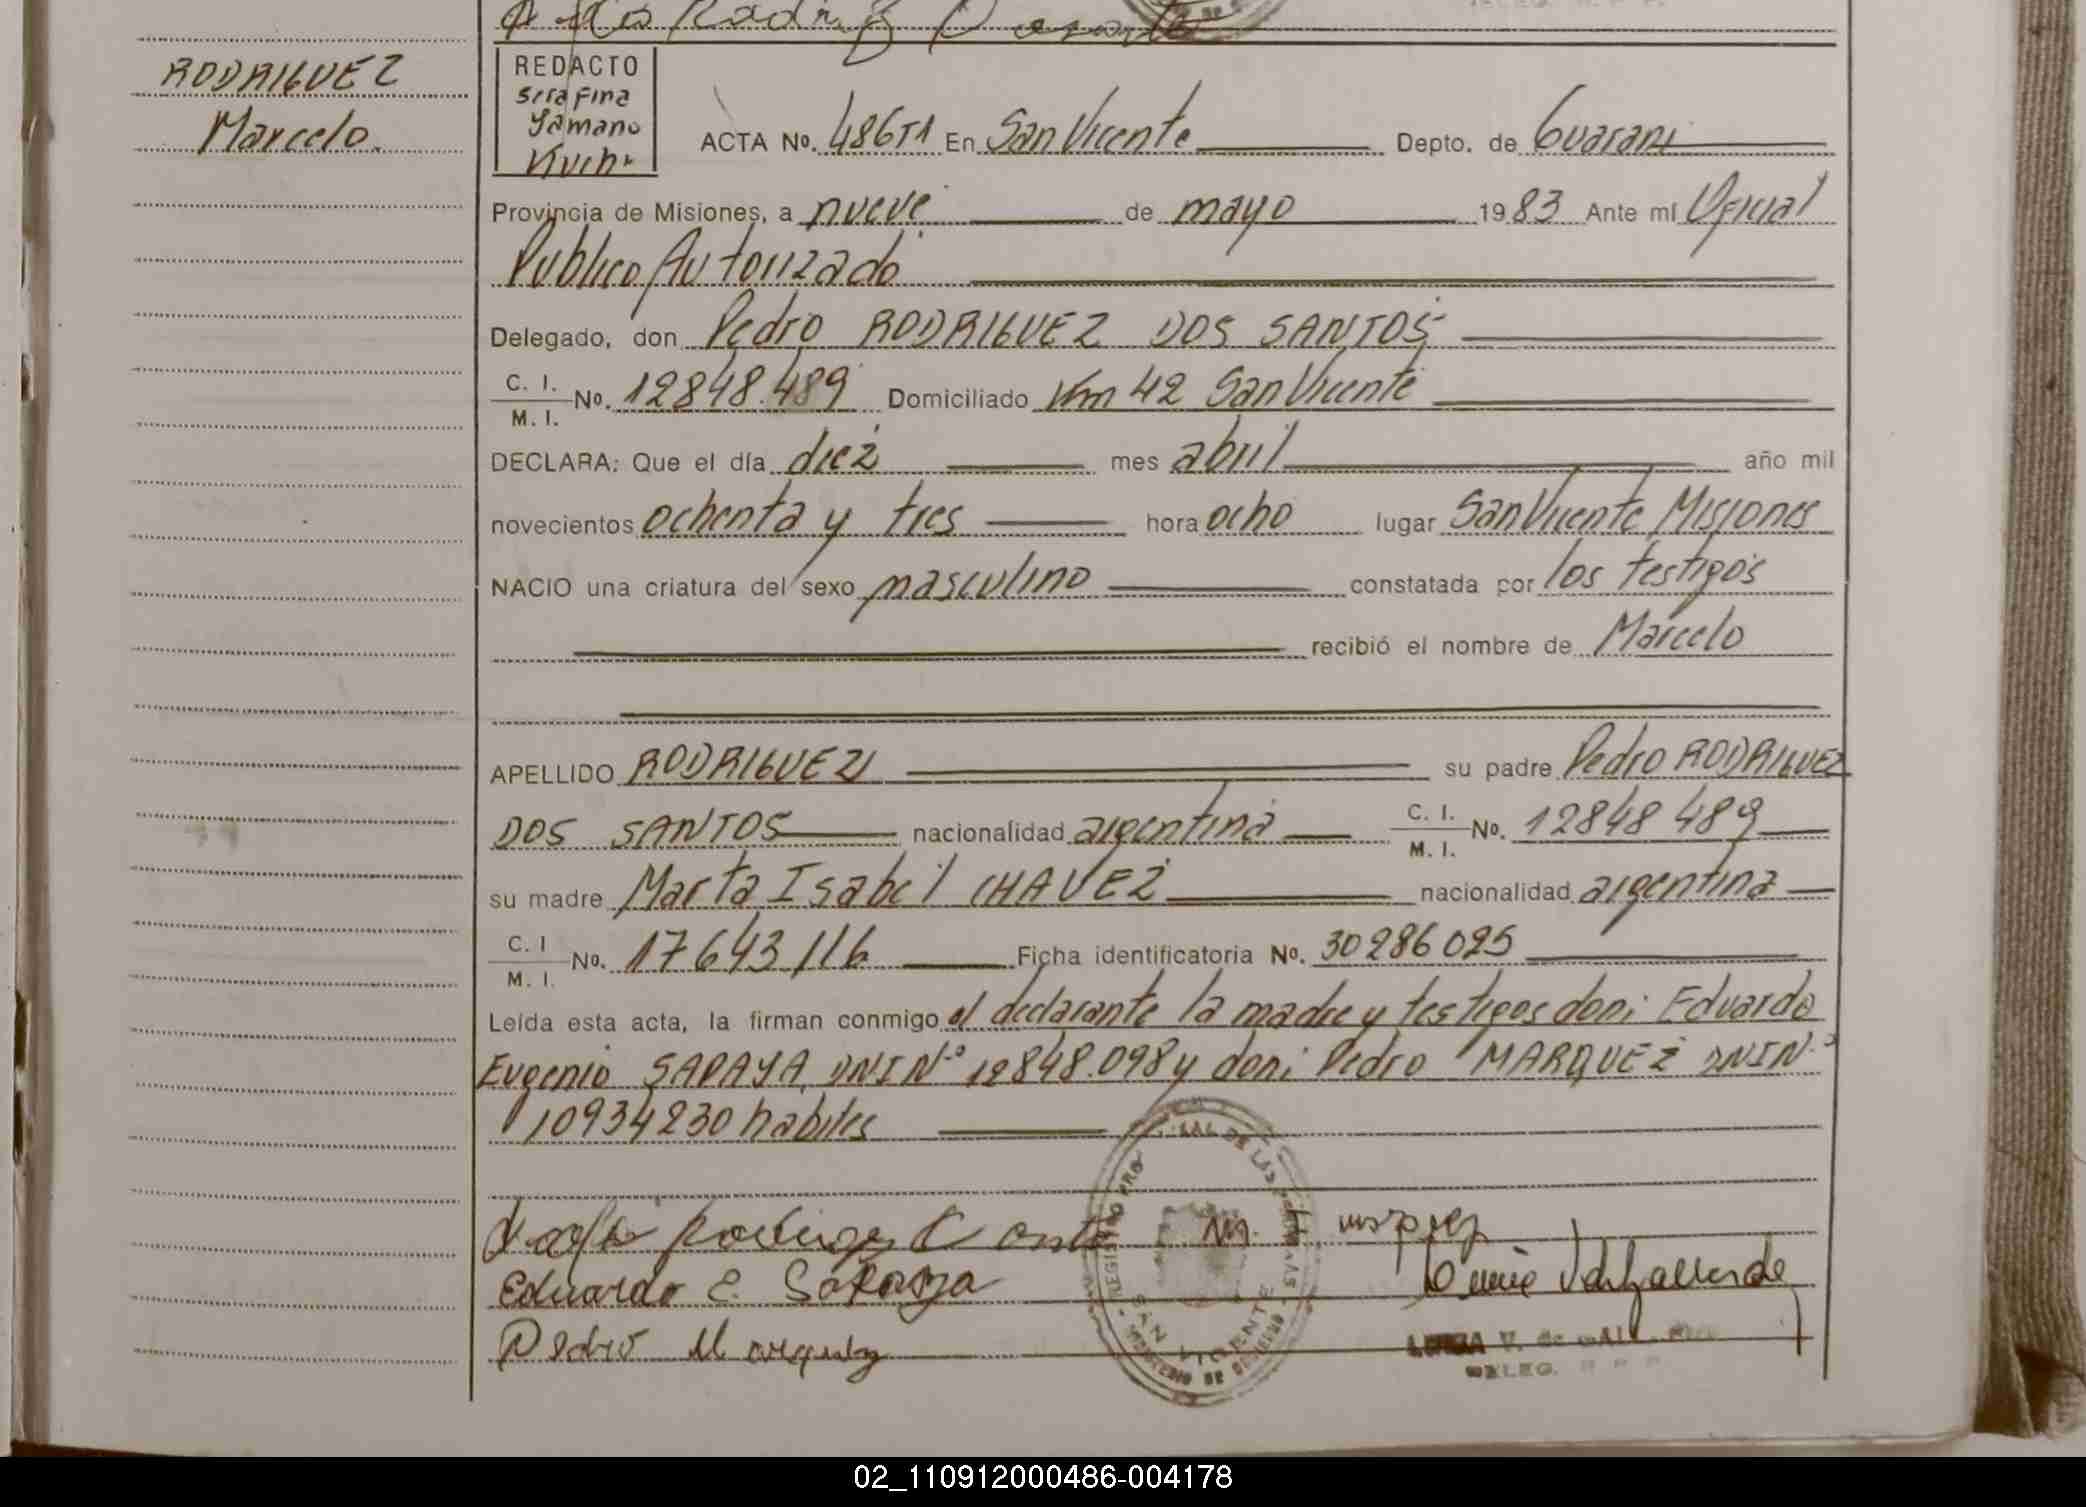 RODRIGUEZ
Marcelo.
REDACTO
Serafina
Yamano
ACTA No. 486T1 En San Vicente Depto. de Guarani
Provincia de Misiones, a nueve de mayo 1983 Ante mí Oficial
Publico Autorizado
Delegado, don Pedro RODRIGUEZ DOS SANTOS
C. I. M. I. No. 12848.489 Domiciliado Km 42 San Vicente
DECLARA: Que el día diez mes abril año mil
novecientos ochenta y tres hora ocho lugar San Vicente Misiones
NACIO una criatura del sexo masculino constatada por los testigos
recibió el nombre de Marcelo
APELLIDO RODRIGUEZ su padre Pedro RODRIGUEZ
DOS SANTOS nacionalidad argentina C. I. M. I. No. 12848 489
su madre Marta Isabel CHAVEZ nacionalidad argentina
C. I M. I. No. 17643116 Ficha identificatoria No. 30286025
Leída esta acta, la firman conmigo el declarante la madre y testigos don: Eduardo
Eugenio SAPAYA DNI Nº 12848.098 y don: Pedro MARQUEZ DNI Nº
10934230 habiles
Eduardo E.
Pedro Marquez
REGISTRO DE LAS PERSONAS
SAN VICENTE
MINISTERIO DE GOBIERNO
V. de
DELEG. R. P. P.
02_110912000486-004178